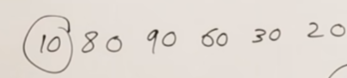 10 80 90 60 30 20